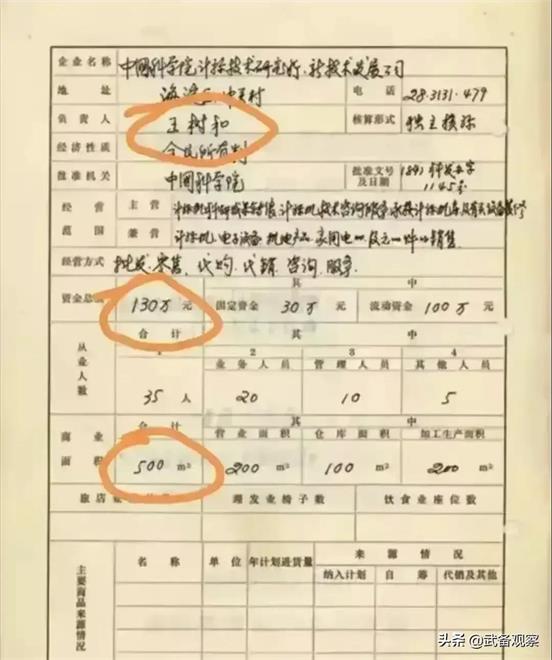 企业名称 中国科学院计算技术研究所新技术发展公司
地址 海淀区中关村 电话 28.3131-479
负责人 王树和 核算形式 独立核算
经济性质 全民所有制
批准机关 中国科学院 批准文号及日期 1145号
经营范围 主营 计算机科研成果 计算机技术咨询服务承接计算机
兼营 计算机、电子设备、机电产品、家用电 销售
经营方式 批发、零售、代购、代销、咨询、服务
资金总额 130万元 其中 固定资金 30万元 流动资金 100万元
从业人数 合计 其中
1 业务人员 2 管理人员 3 其他人员 4
35人 20 10 5
商业面积 合计 其中
营业面积 仓库面积 加工生产面积
500 m² 200 m² 100 m² 200 m²
旅店 理发业椅子数 饮食业座位数
主要商品来源情况 名称 单位 年计划进货量 来源情况
纳入计划 自筹 代销及其他
头条 @武备观察